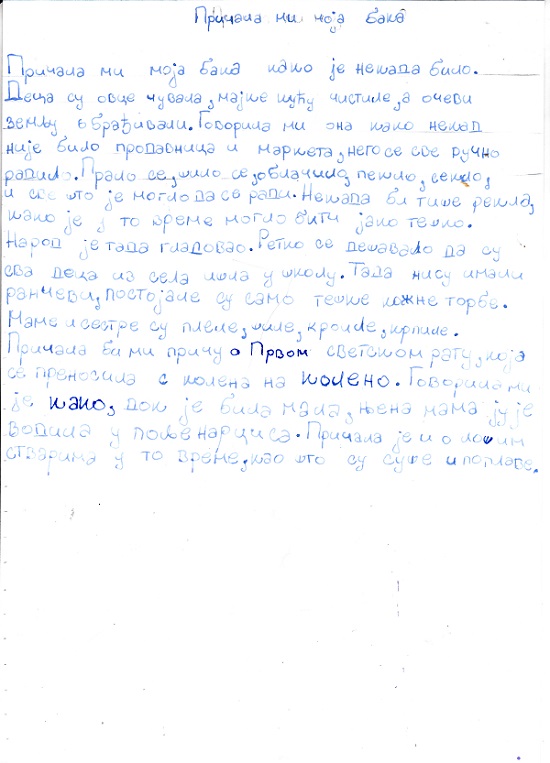 Причала ми моја бака
Причала ми моја бака како је некада било.
Деца су овце чувала, мајке кућу чистиле, а очеви
земљу обрађивали. Говорила ми она како некад
није било продавница и маркета, него се све ручно
радило. Прало се, шило се, облачило, пекло, секло,
и све што је могло да се ради. Некада би тише рекла,
како је у то време могло бити јако тешко.
Народ је тада гладовао. Ретко се дешавало да су
сва деца из села ишла у школу. Тада нису имали
ранчеви, постојале су само тешке кожне торбе.
Маме и сестре су плеле, шиле, кројиле, крпиле.
Причала би ми причу о Првом светском рату, која
се преносила с колена на колено. Говорила ми
је како, док је била мала, њена мама ју је
водила у поље нарциса. Причала је и о лошим
стварима у то време, као што су суше и поплаве.